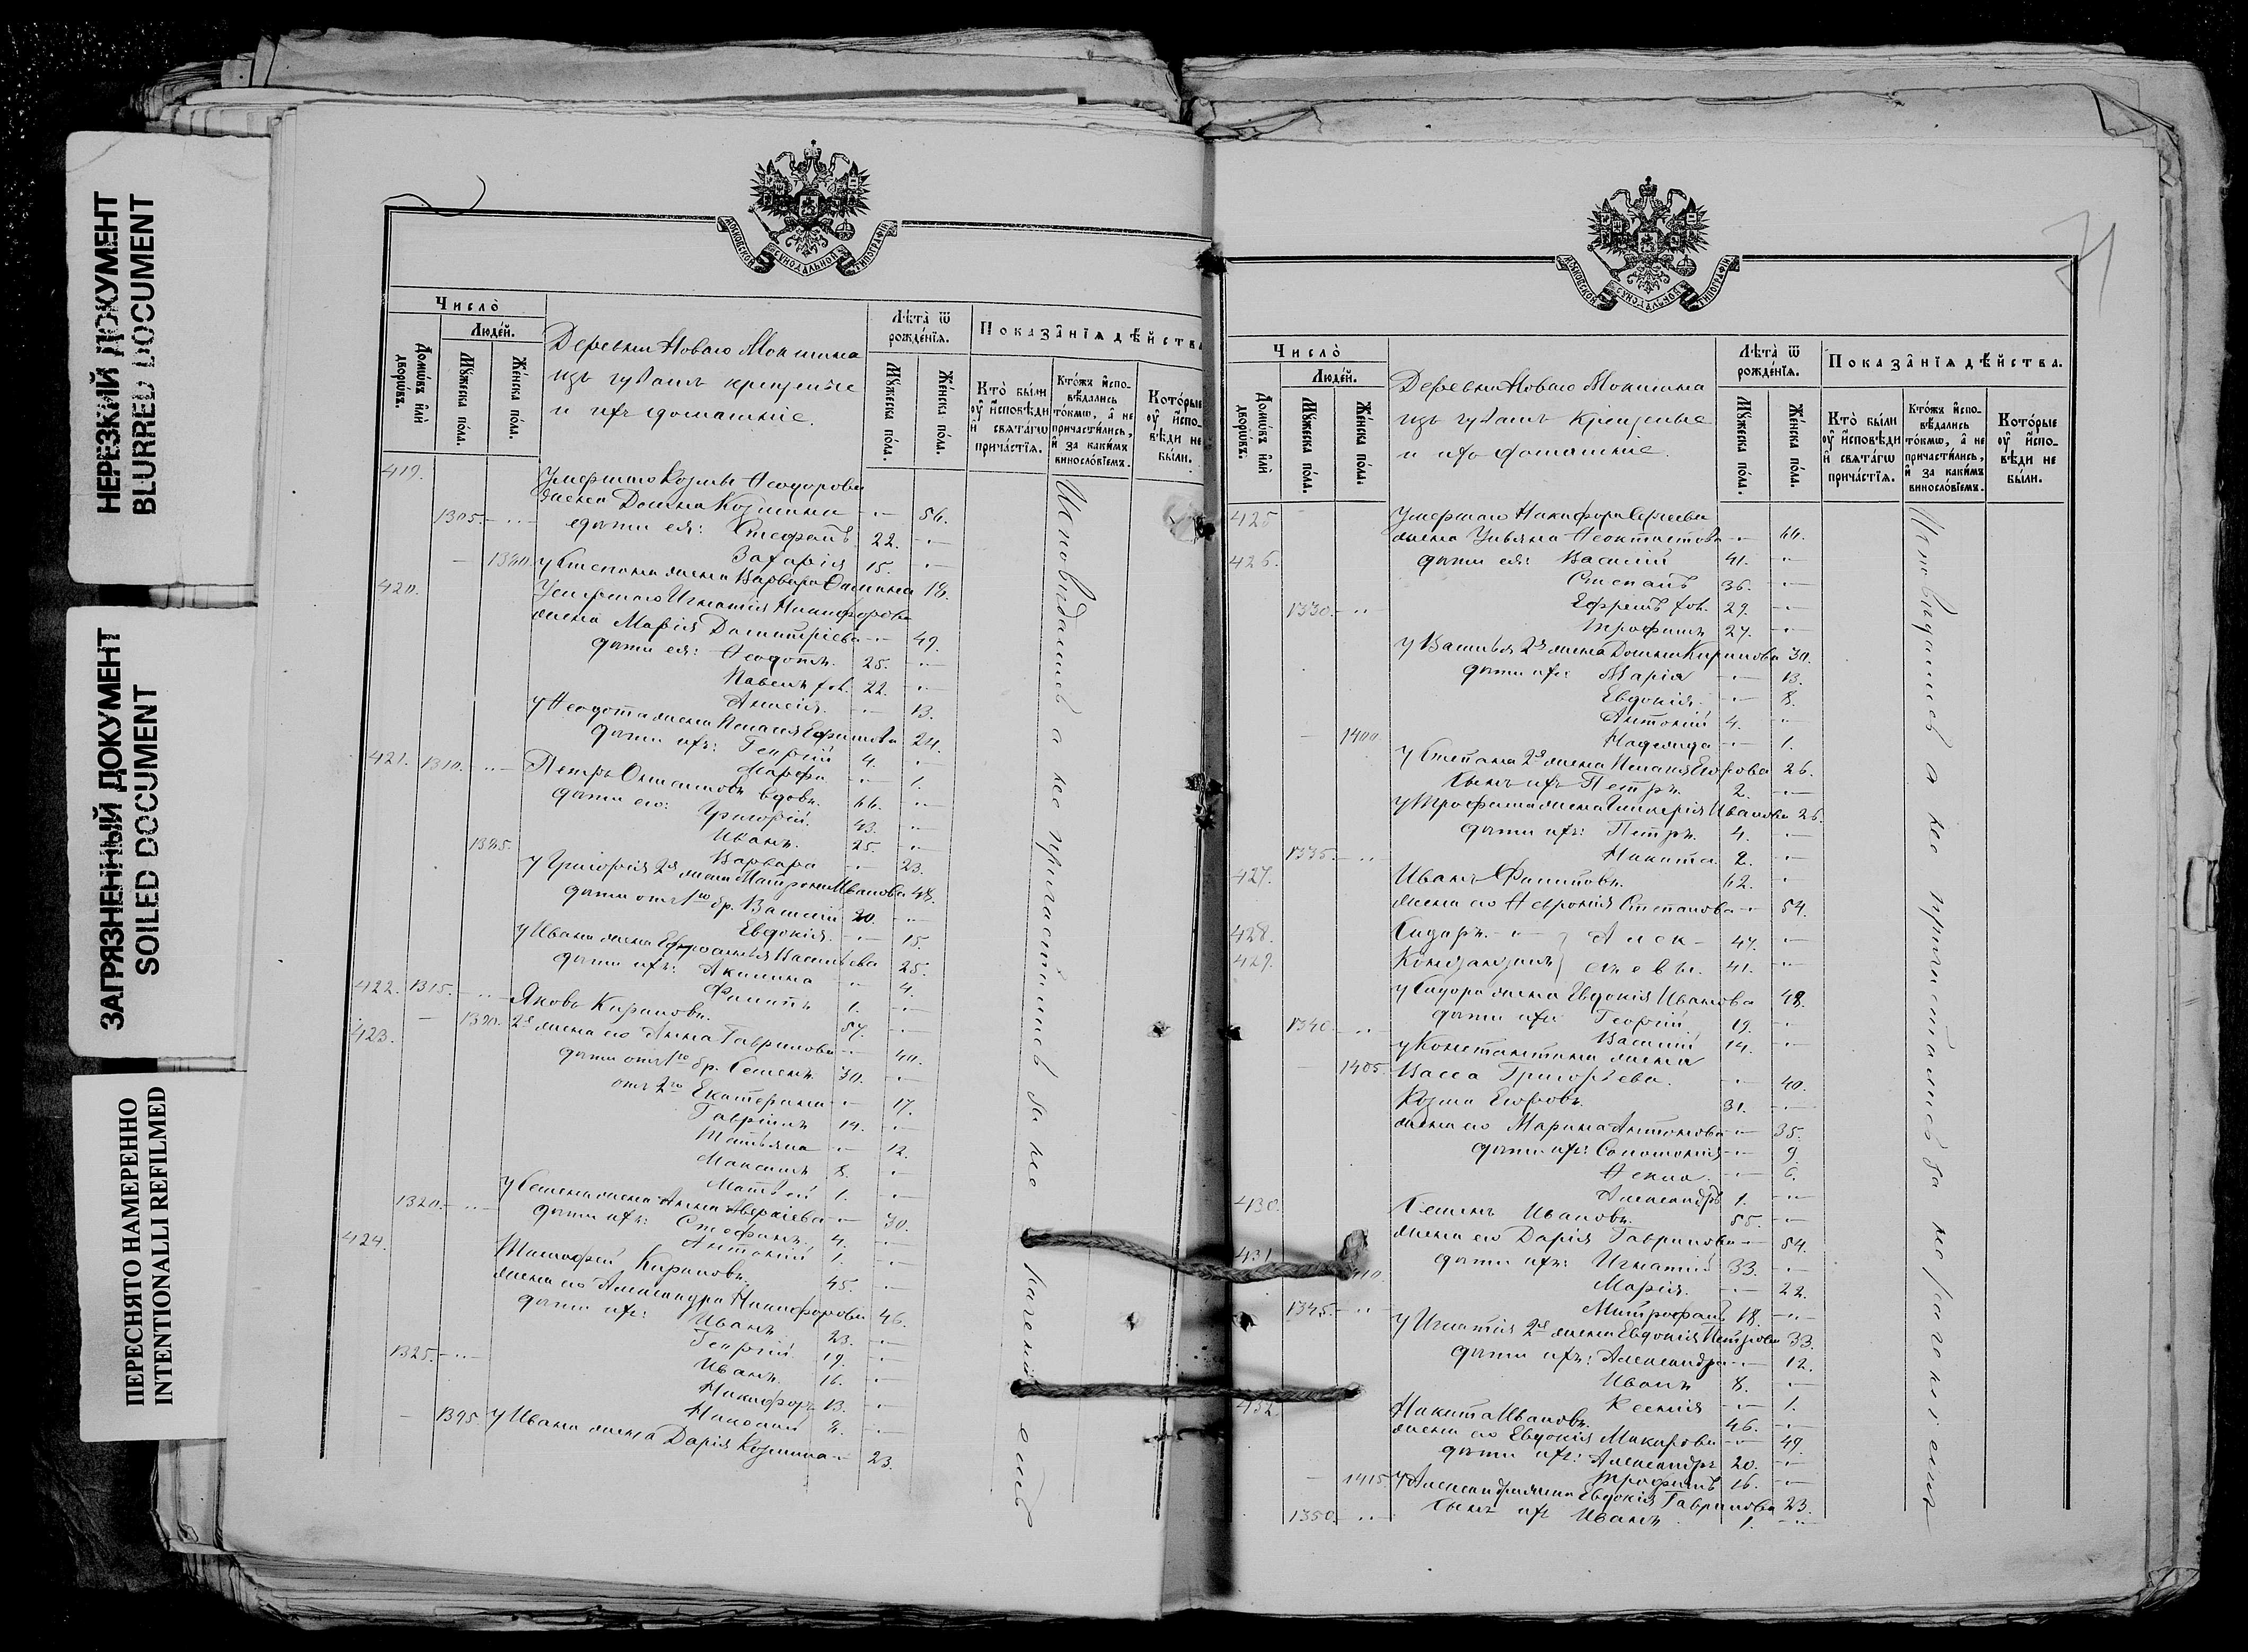 НЕРЕЗКИЙ ДОКУМЕНТ
BLURRED DOCUMENT
ЗАГРЯЗНЕННЫЙ ДОКУМЕНТ
SOILED DOCUMENT
ПЕРЕСНЯТО НАМЕРЕННО
INTENTIONALLI REFILMED
МОСКОВСКОЙ СѴНОДАЛЬНОЙ ТИПОГРАФІИ
Число̀
Люде́й.
Домѡ́въ и҆лѝ дворѡ́въ.
Мꙋ́жеска по́ла.
Же́нска по́ла.
Деревни Новаго Мокшина
изъ чувашъ крещеные
и ихъ домашніе.
Лѣ́та ѿ рожде́нїѧ.
Мꙋ́жеска по́ла.
Же́нска по́ла.
Показа̑нїѧ дѣ́йства
Кто̀ бы́ли ᲂу҆ и҆сповѣди и҆ свѧта́гѡ прича́стїѧ.
Кто́жъ и҆спо- вѣ́дались то́кмѡ, а҆ не причасти́лись, и҆ за каки́мъ винносло́вїемъ.
Кото́рые ᲂу҆ и҆спо- вѣ́ди не бы́ли.
419. Умершаго Козмы Ѳеодорова
жена Домна Козмина 56.
1305. дѣти ея: Стефанъ 22.
Захарія 15.
1380. у Степана жена Варвара 18.
420. Умершаго Игнатія Никифорова
жена Марія Димитріева 49.
дѣти ея: Ѳеодотъ 25.
Павелъ хол. 22.
Анисія 13.
у Ѳеодота жена Пелагія Ефимова 24.
дѣти ихъ: Георгій 4.
Марѳа 1.
421. 1310. Петръ вдовъ. 66.
дѣти его: Григорій 43.
Иванъ 25.
1385. Варвара 23.
у Григорія 2я жена Матрона Иванова 48.
дѣти отъ 1го бр. Василій 20.
Евдокія 15.
у Ивана жена Евфросинія Васильева 25.
дѣти ихъ: Акилина 4.
Филиппъ 1.
422. 1315. Яковъ Кириловъ 57.
423. 1390. 2я жена его Анна Гаврилова 40.
дѣти отъ 1го бр. Семенъ 30.
отъ 2го Екатерина 17.
Гавріилъ 14.
Татьяна 12.
Максимъ 8.
Матвѣй 1.
1320. у Семена жена Анна Аверкіева 30.
дѣти ихъ: Стефанъ 4.
Антоній 1.
424. Тимофей Кириловъ 45.
жена его Александра Никифорова 46.
дѣти ихъ: Иванъ 23.
Георгій 19.
1325. Иванъ 16.
Никифоръ 13.
Николай 8.
1395. у Ивана жена Дарія Козмина 23.
Исповѣдались а не причастились за не
МОСКОВСКОЙ СѴНОДАЛЬНОЙ ТИПОГРАФІИ
Число̀
Люде́й.
Домѡ́въ и҆лѝ дворѡ́въ.
Мꙋ́жеска по́ла.
Же́нска по́ла.
Деревни Новаго Мокшина
изъ чувашъ крещеные
и ихъ домашніе.
Лѣ́та ѿ рожде́нїѧ.
Мꙋ́жеска по́ла.
Же́нска по́ла.
Показа̑нїѧ дѣ́йства.
Кто̀ бы́ли ᲂу҆ и҆сповѣди и҆ свѧта́гѡ прича́стїѧ.
Кто́жъ и҆спо- вѣ́дались то́кмѡ, а҆ не причасти́лись, и҆ за каки́мъ винносло́вїемъ.
Кото́рые ᲂу҆ и҆спо- вѣ́ди не бы́ли.
425 Умершаго Никифора Сергеева
жена Ульяна Ѳеоктистова 66.
426. дѣти ея: Василій 41.
Степанъ 36.
1330. Ефремъ хол. 29.
Трофимъ 27.
у Василья 2я жена Домна Кирилова 30.
дѣти ихъ: Марія 13.
Евдокія 8.
Антоній 4.
1400. Надежда 1.
у Степана 2я жена Пелагія Егорова 26.
сынъ ихъ Петръ 2.
у Трофима жена Гликерія Иванова 26.
дѣти ихъ: Петръ 4.
1335. Никита 2.
427. Иванъ Филиповъ. 62.
жена его Ѳевронія Степанова 54.
428. Сидоръ Алек- 47.
429. Константинъ сѣевы. 41.
у Сидора жена Евдокія Иванова 48.
1340. дѣти ихъ: Георгій 19.
Василій 14.
у Константина жена
1405. Васса Григорьева. 40.
Козма Егоровъ. 31.
жена его Марина Антонова 35.
дѣти ихъ: Соломонія 9.
Ѳекла 6.
Александръ 1.
430. Семенъ Ивановъ. 55.
жена его Дарія Гаврилова 54.
431. дѣти ихъ: Игнатій 33.
Марія 22.
1345. Митрофанъ 18.
у Игнатія 2я жена Евдокія Петрова 33.
дѣти ихъ: Александра 12.
Иванъ 8.
Ксенія 1.
432. Никита Ивановъ. 46.
жена его Евдокія Макарова 49.
дѣти ихъ: Александръ 20.
Трофимъ 16.
1415. у Александра жена Евдокія Гаврилова 23.
1350. сынъ ихъ Иванъ 1.
Исповѣдались а не причастились за не